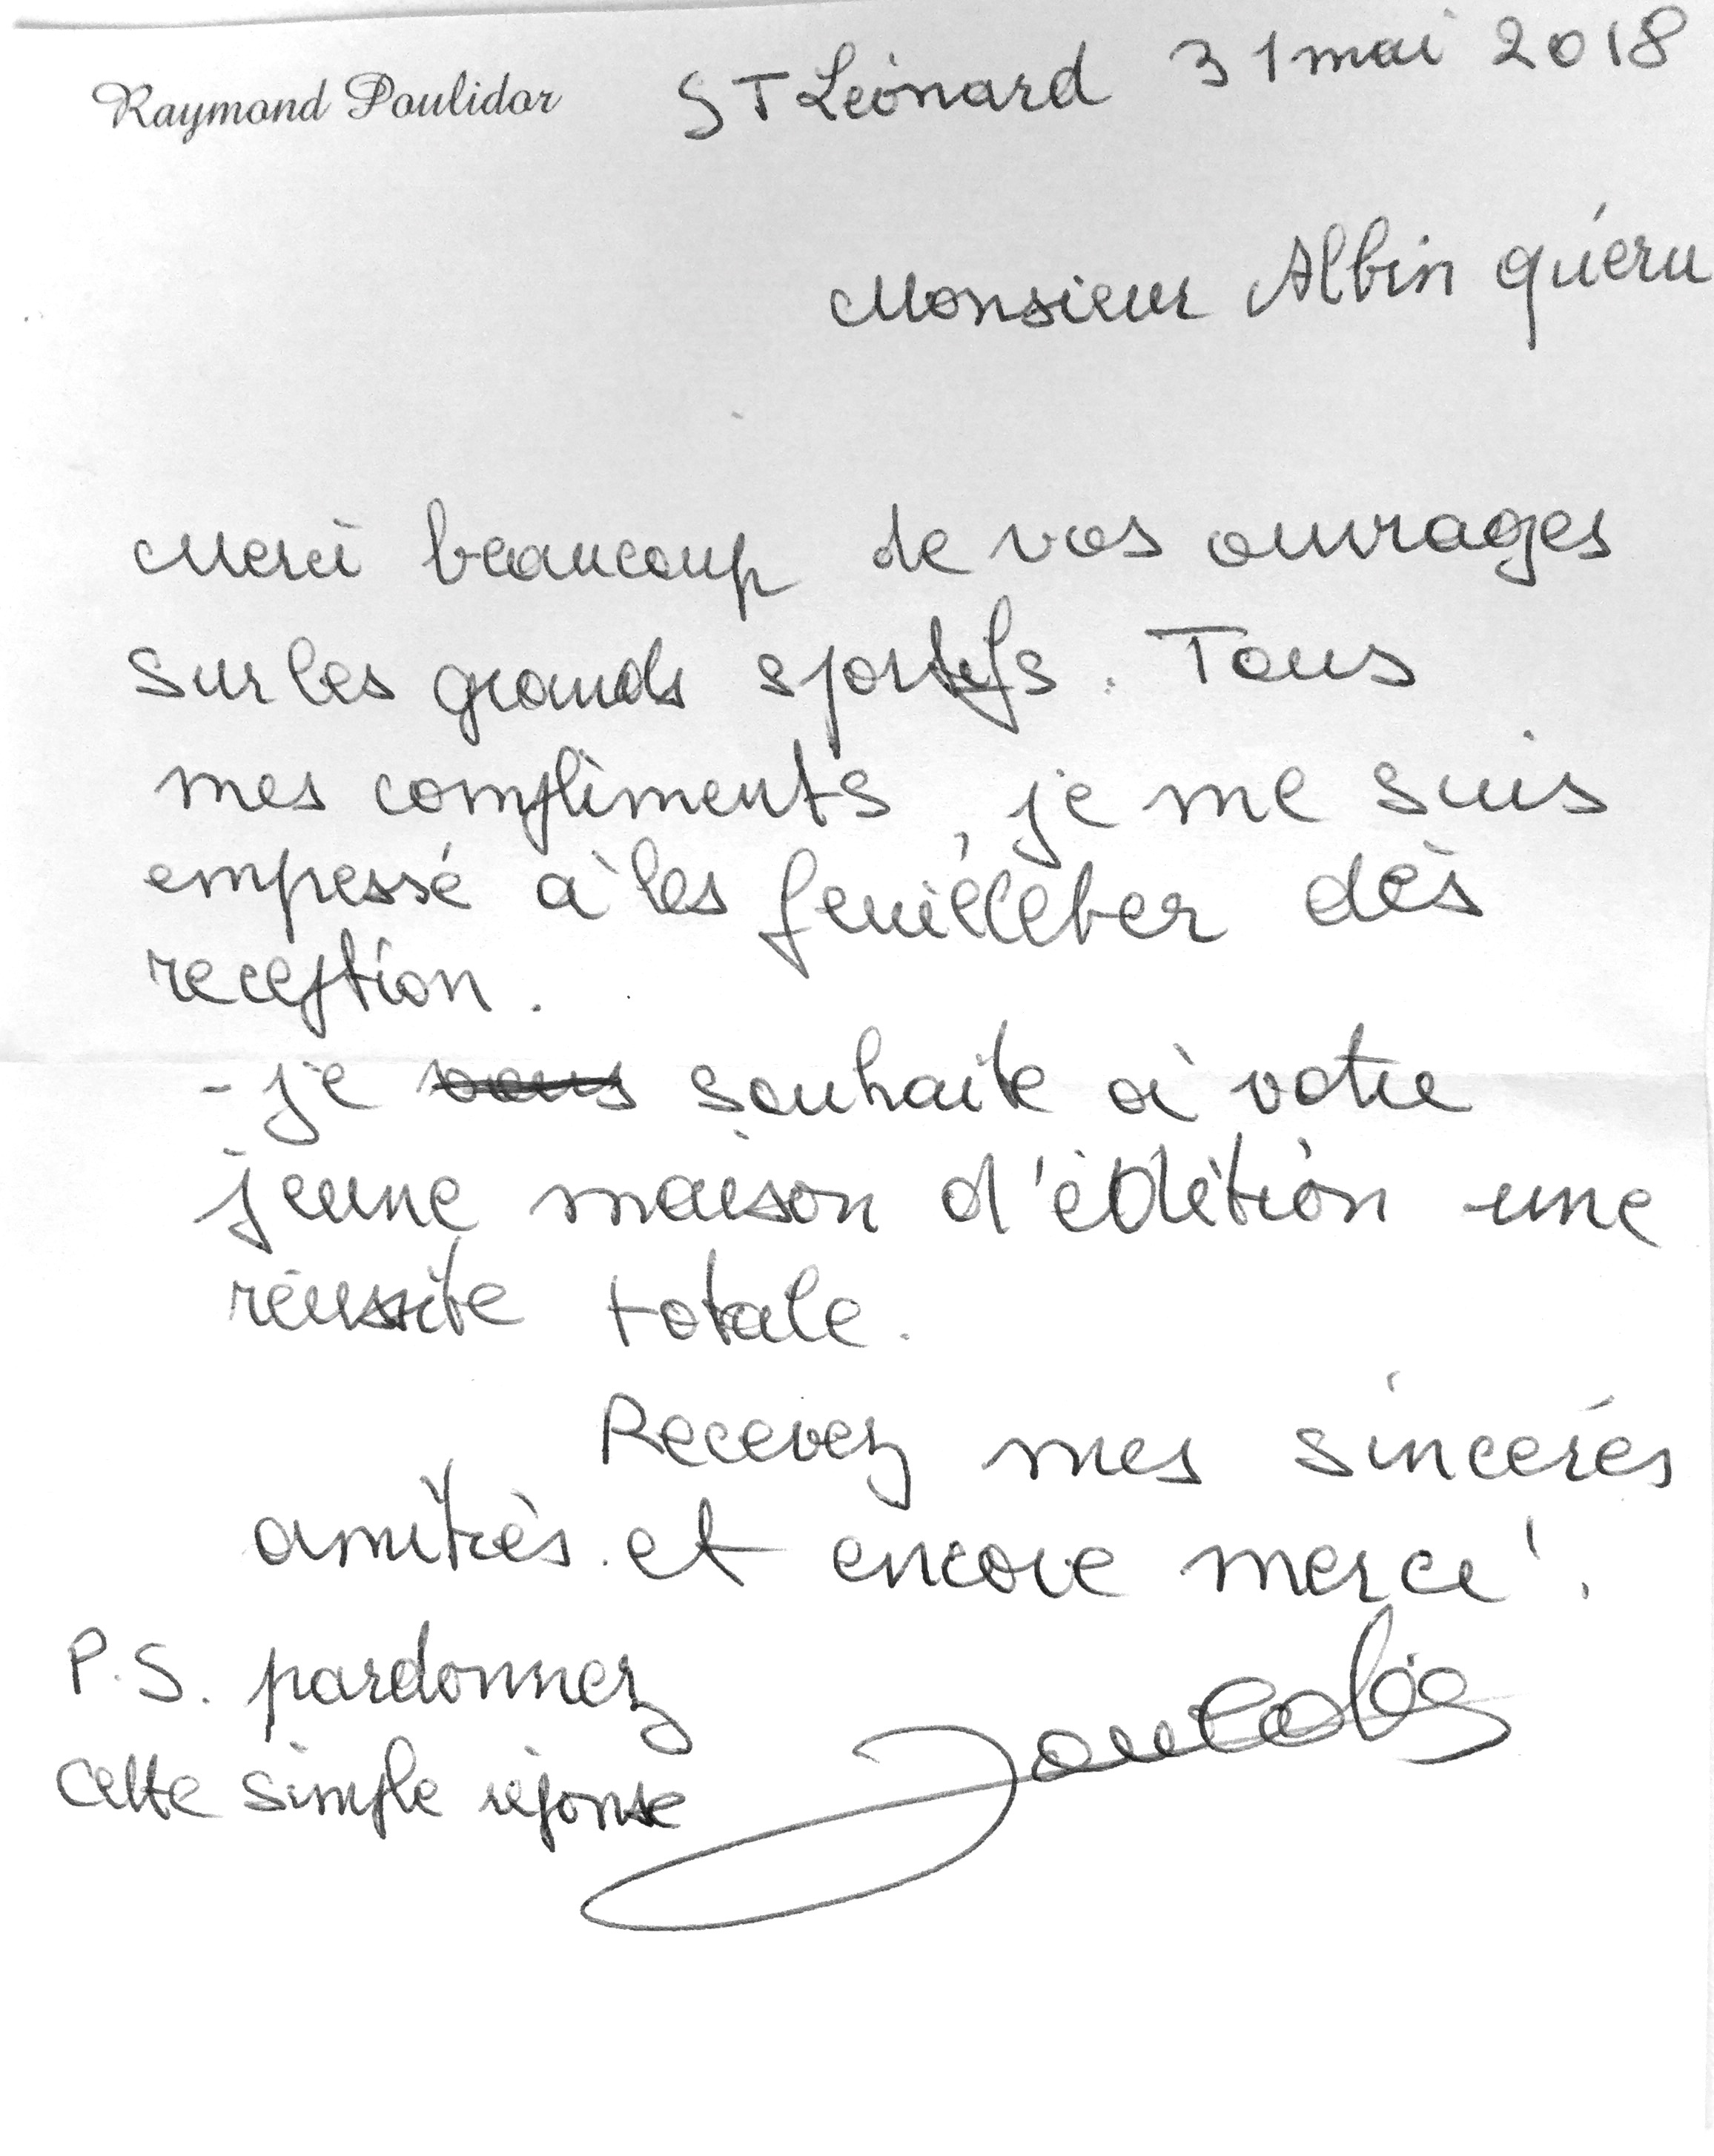 Raymond Poulidor
ST Léonard 31 mai 2018
Monsieur Albin quéru
Merci beaucoup de vos ouvrages
sur les grands sportifs. Tous
mes compliments, je me suis
empessé à les feuilleter dès
reception.
- je vous souhaite à votre
jeune maison d'édition une
réussite totale.
Recevez mes sincères
amitiés. et encore merci.
P.S. pardonnez
cette simple réponse